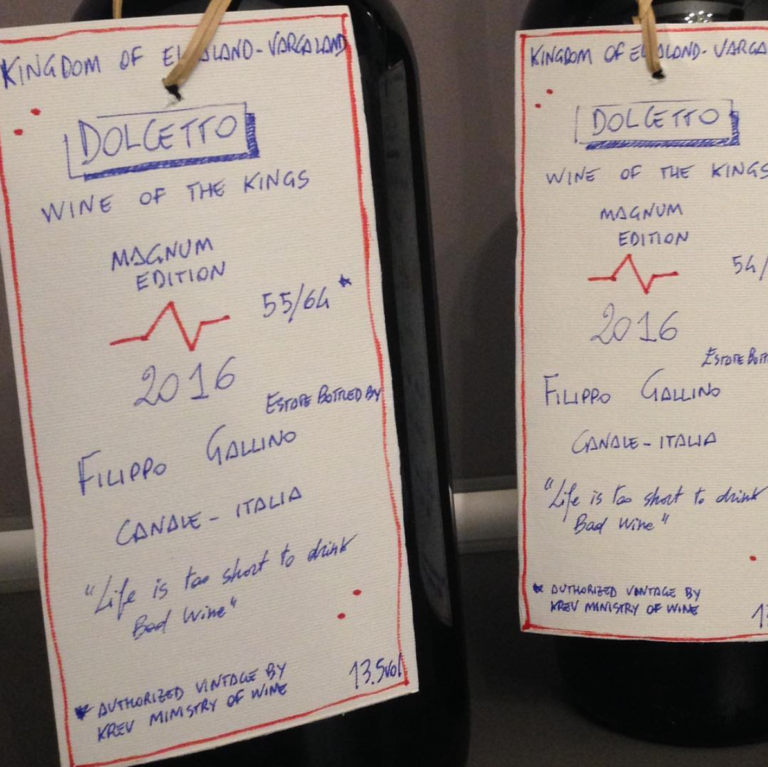 KINGDOM OF ELGALAND-VARGALAND
DOLCETTO
WINE OF THE KINGS
MAGNUM
EDITION
55/64*
2016
ESTATE BOTTLED BY
FILIPPO GALLINO
CANALE - ITALIA
"Life is too short to drink
Bad Wine"
* AUTHORIZED VINTAGE BY
KREV MINISTRY OF WINE
13.5vol
KINGDOM OF
DOLCETTO
WINE OF THE KINGS
MAGNUM
EDITION
54/
2016
FILIPPO GALLINO
CANALE - ITALIA
"Life is too short to drink
Bad Wine"
* AUTHORIZED VINTAGE BY
KREV MINISTRY OF WINE